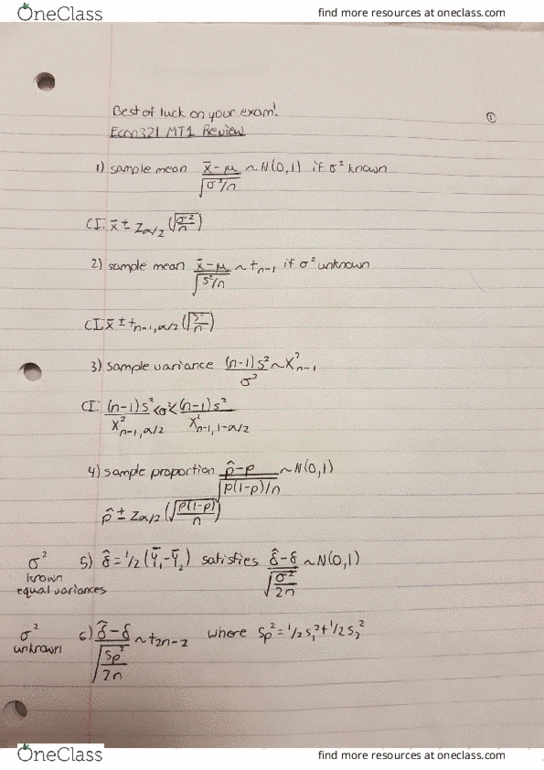 OneClass find more resources at oneclass.com
Best of luck on your exam!
①
Econ321 MT1 Review
1) sample mean (x̄-μ)/√(σ²/n) ~ N(0,1) if σ² known
CI: x̄ ± Zα/2 (√(σ²/n))
2) sample mean (x̄-μ)/√(s²/n) ~ tn-1 if σ² unknown
CI x̄ ± tn-1,α/2 (√(s²/n))
3) sample variance (n-1)s²/σ² ~ X²n-1
CI: (n-1)s²/X²n-1,α/2 < σ² < (n-1)s²/X²n-1,1-α/2
4) sample proportion (p̂-p)/√(p(1-p)/n) ~ N(0,1)
p̂ ± Zα/2 (√(p(1-p)/n))
σ² known equal variances 5) δ̂ = 1/2 (Ȳ₁-Ȳ₂) satisfies (δ̂-δ)/√(σ²/2n) ~ N(0,1)
σ² unknown 6) (δ̂-δ)/√(Sp²/2n) ~ t2n-2 where Sp² = 1/2 S₁² + 1/2 S₂²
OneClass find more resources at oneclass.com